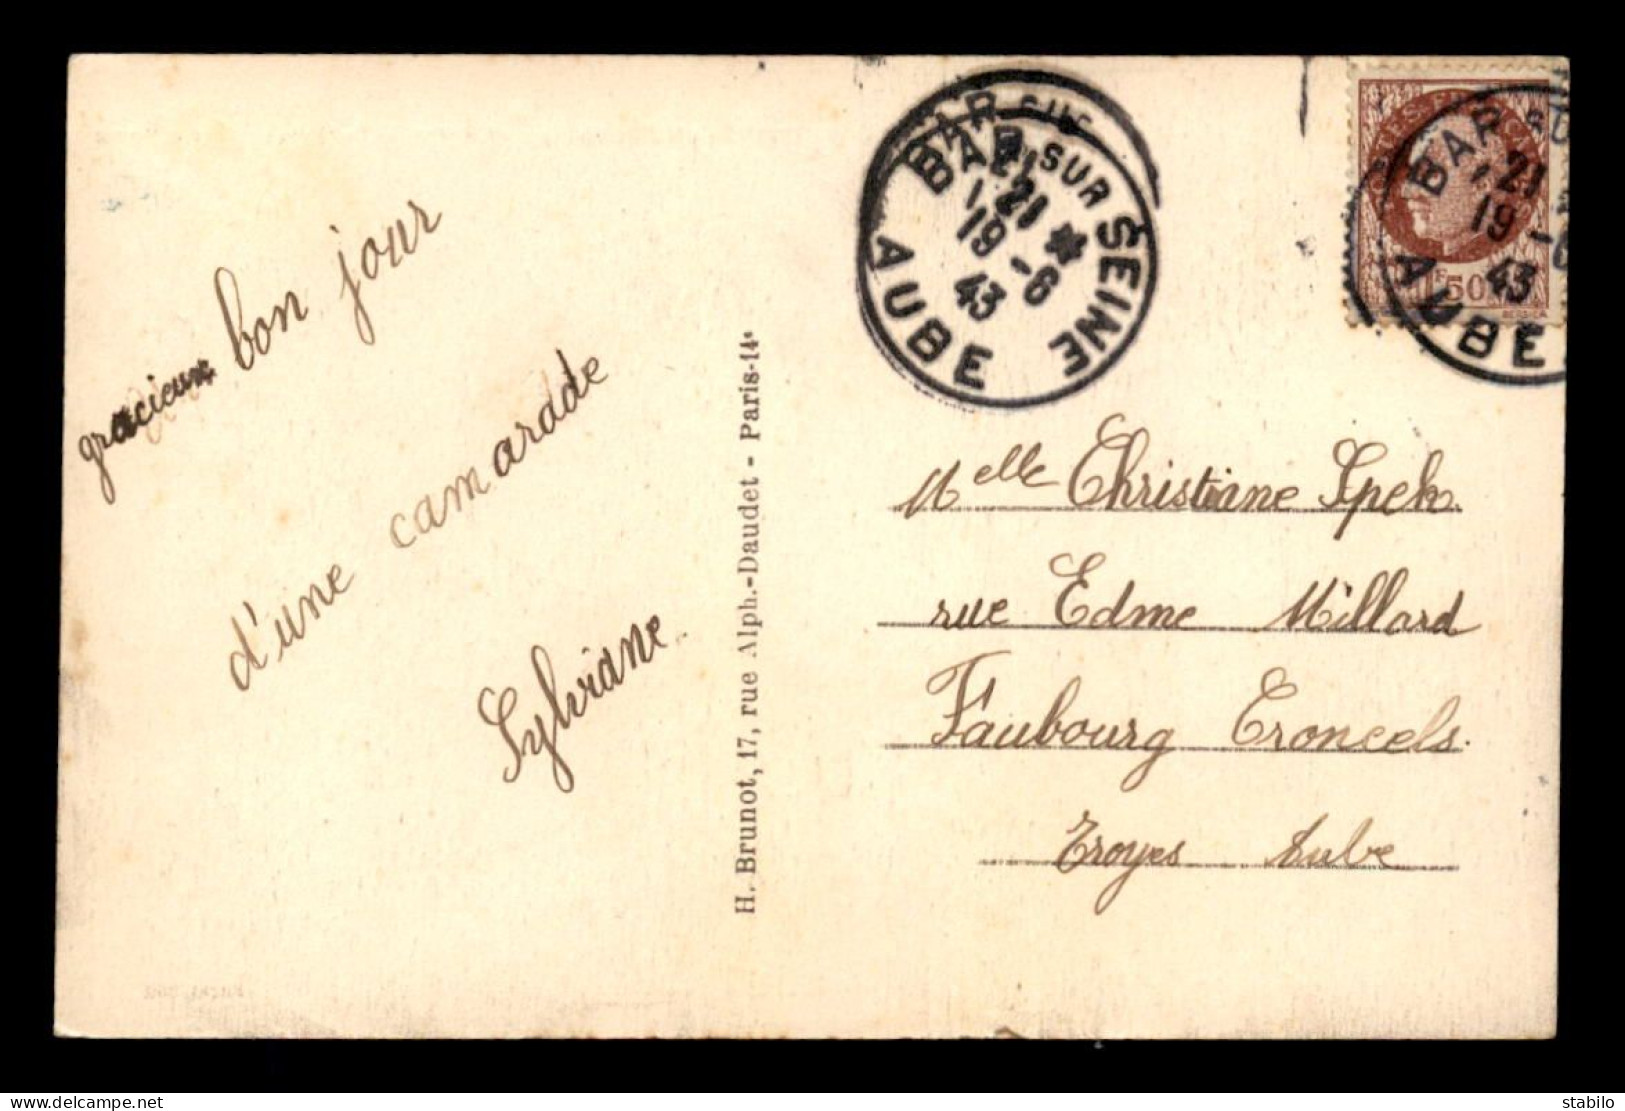 gracieux bon jour
d'une camaradde
Sylviane
H. Brunot, 17, rue Alph.-Daudet - Paris-14e
BAR SUR SEINE
21
19 -6
43
AUBE
BAR SU
21
19 -6
43
AUBE
1F50
Melle Christiane Speh.
rue Edme Millard
Faubourg Croncels.
Troyes Aube
stabilo
delcampe.net